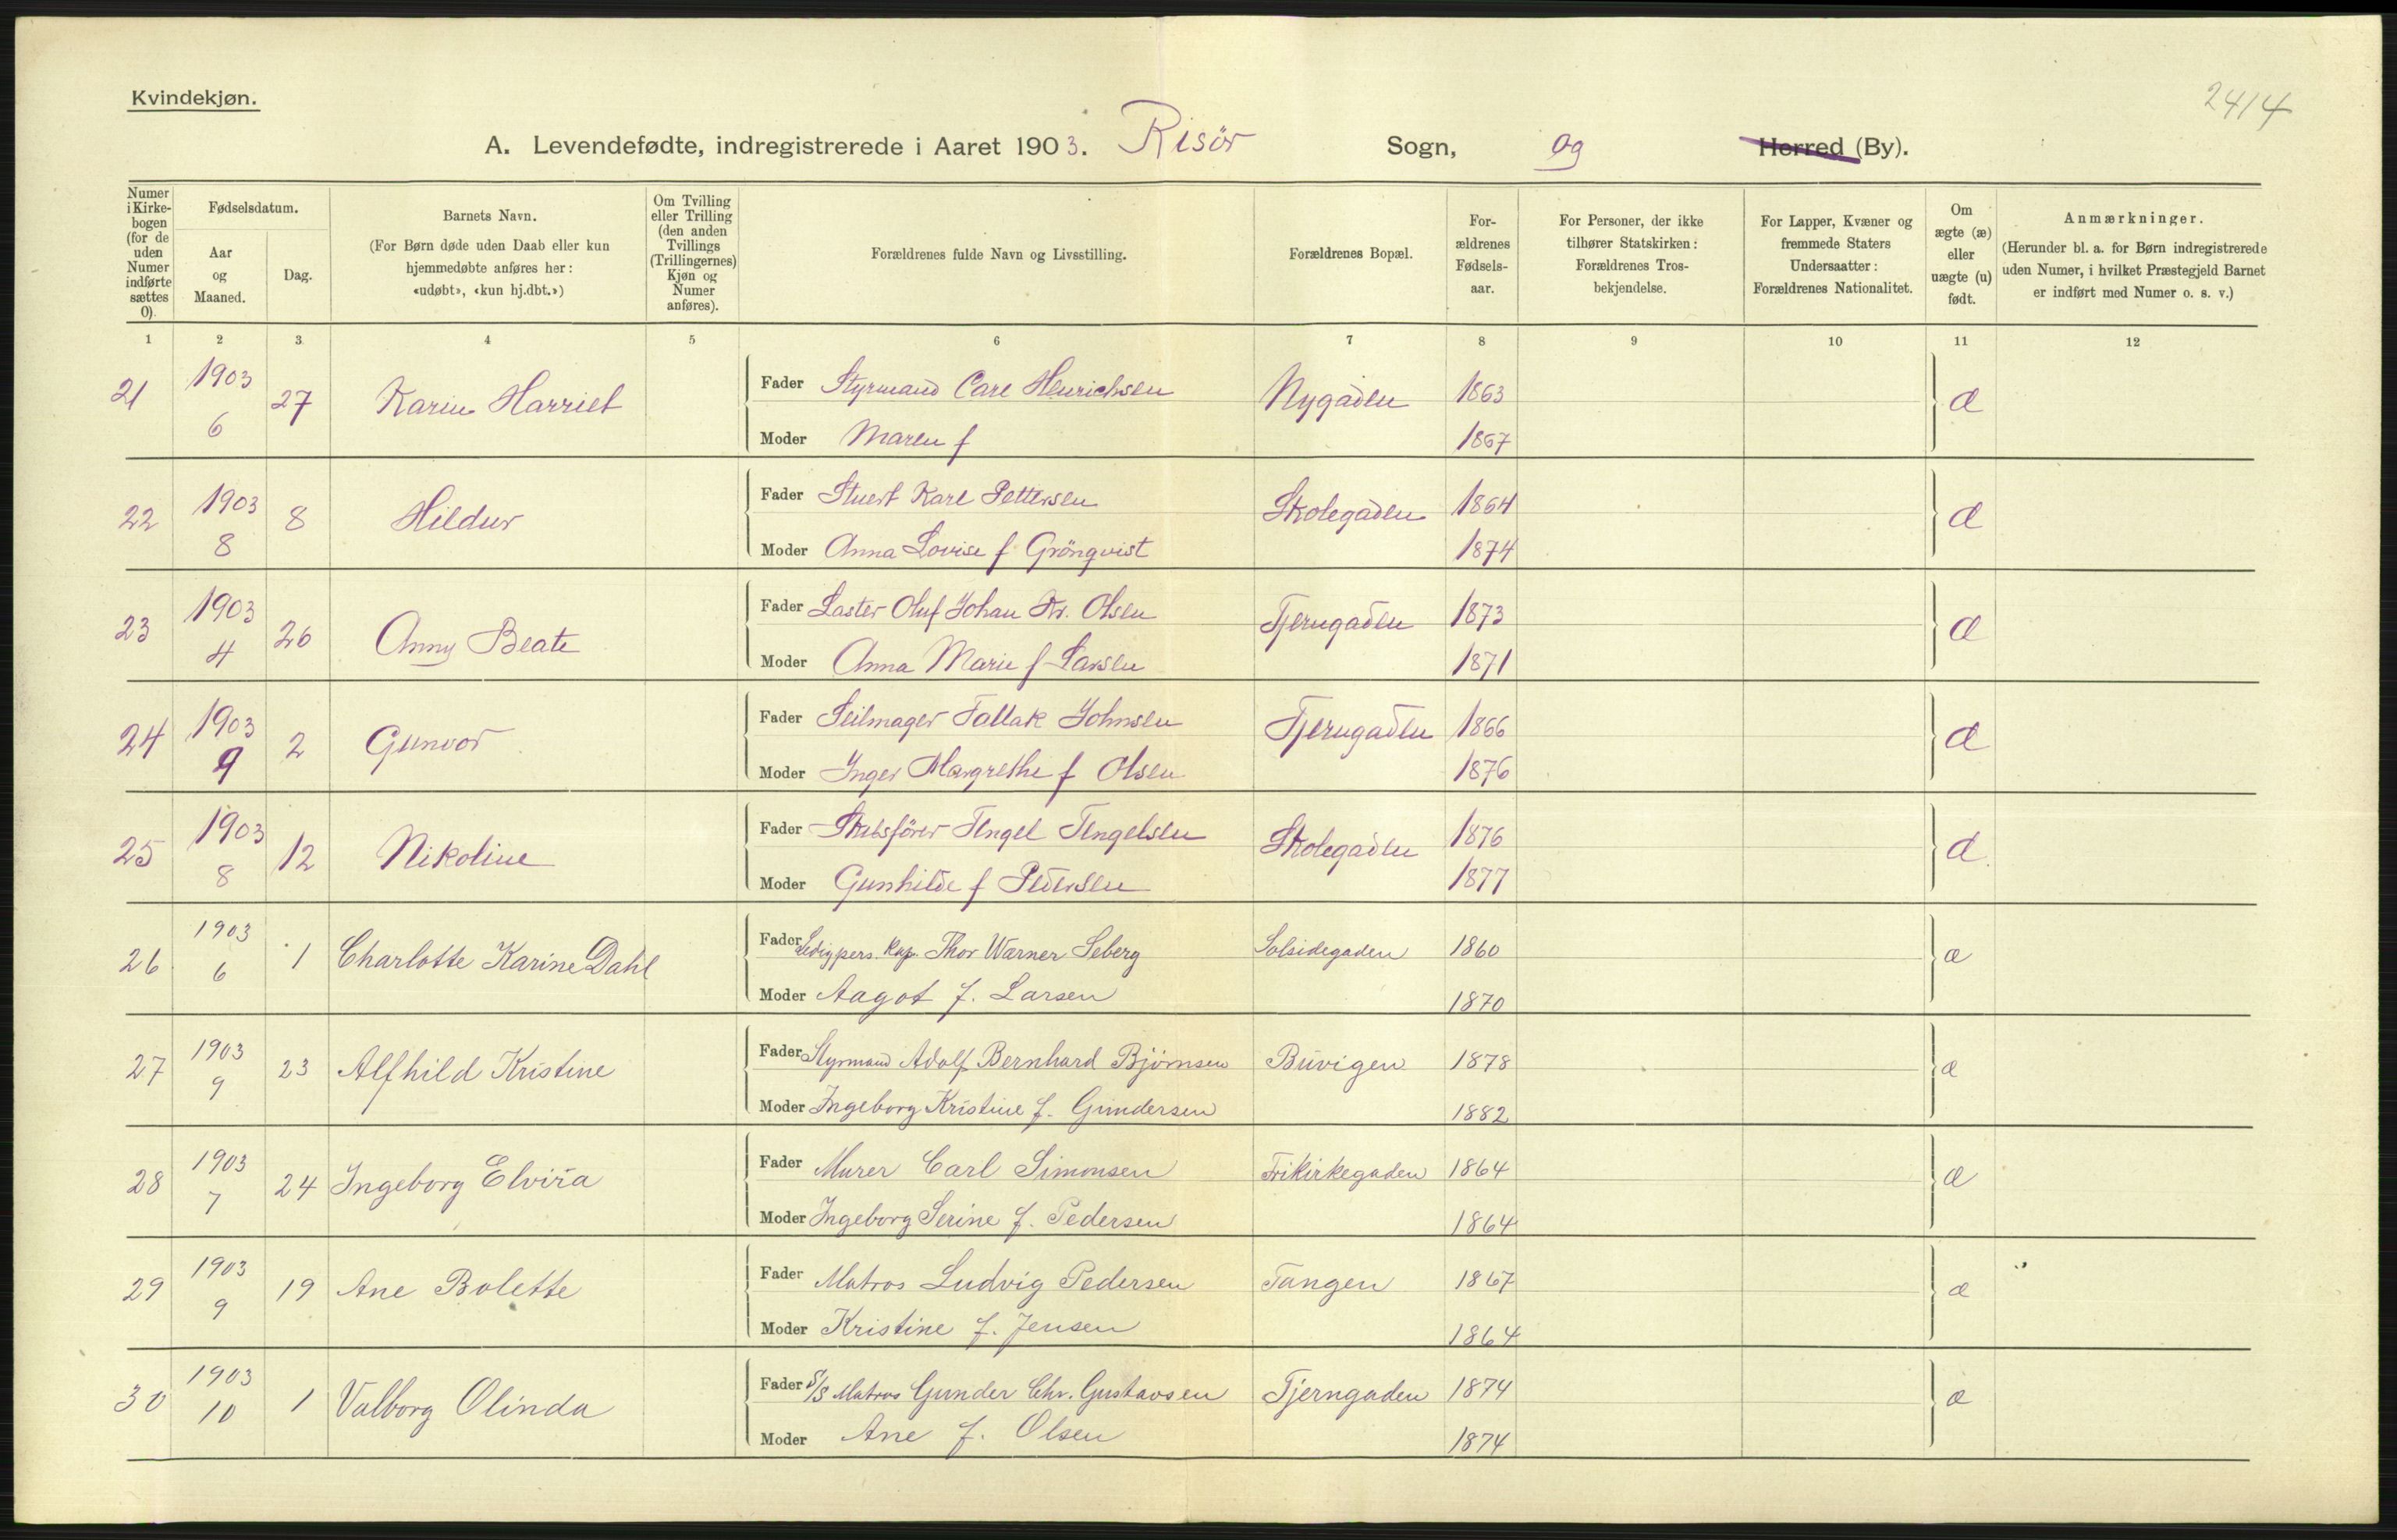 Kvindekjøn.
2414
A. Levendefødte, indregistrerede i Aaret 1903. Risör Sogn, og Herred (By).
Numer i Kirkebogen (for de uden Numer indførte sættes 0).
Fødselsdatum.
Aar og Maaned.
Dag.
Barnets Navn.
(For Børn døde uden Daab eller kun hjemmedøbte anføres her: «udøbt», «kun hj.dbt.»)
Om Tvilling eller Trilling (den anden Tvillings (Trillingernes) Kjøn og Numer anføres).
Forældrenes fulde Navn og Livsstilling.
Forældrenes Bopæl.
For-ældrenes Fødsels-aar.
For Personer, der ikke tilhører Statskirken: Forældrenes Tros-bekjendelse.
For Lapper, Kvæner og fremmede Staters Undersaatter: Forældrenes Nationalitet.
Om ægte (æ) eller uægte (u) født.
Anmærkninger.
(Herunder bl. a. for Børn indregistrerede uden Numer, i hvilket Præstegjeld Barnet er indført med Numer o. s. v.)
1 2 3 4 5 6 7 8 9 10 11 12
21 1903 6 27 Karin Harriet Fader Styrmand Carl Henrichsen Nygaden 1863 æ
Moder Maren f 1867
22 1903 8 8 Hildur Fader Stuert Karl Pettersen Skolegaden 1864 æ
Moder Anna Lovise f Grönqvist 1874
23 1903 4 26 Anny Beate Fader Laster Oluf Johan Kr. Olsen Tjerngaden 1873 æ
Moder Anna Marie f Larsen 1871
24 1903 9 2 Gunvor Fader Seilmager Tallak Johnsen Tjerngaden 1866 æ
Moder Inger Margrethe f Olsen 1876
25 1903 8 12 Nikoline Fader Skibsförer Tengel Tengelsen Skolegaden 1876 æ
Moder Gunhilde f Pedersen 1877
26 1903 6 1 Charlotte Karine Dahl Fader Ledig pers. Kap. Thor Warner Seberg Solsidegaden 1860 æ
Moder Aagot f. Larsen 1870
27 1903 9 23 Alfhild Kristine Fader Styrmand Adolf Bernhard Bjørnsen Buvigen 1878 æ
Moder Ingeborg Kristine f. Gundersen 1882
28 1903 7 24 Ingeborg Elvira Fader Murer Carl Simonsen Frikirkegaden 1864 æ
Moder Ingeborg Serine f. Pedersen 1864
29 1903 9 19 Ane Bolette Fader Matros Ludvig Pedersen Tangen 1867 æ
Moder Kristine f. Jensen 1864
30 1903 10 1 Valborg Olinda Fader S/S Matros Gunder Chr. Gustavsen Tjerngaden 1874 æ
Moder Ane f. Olsen 1874